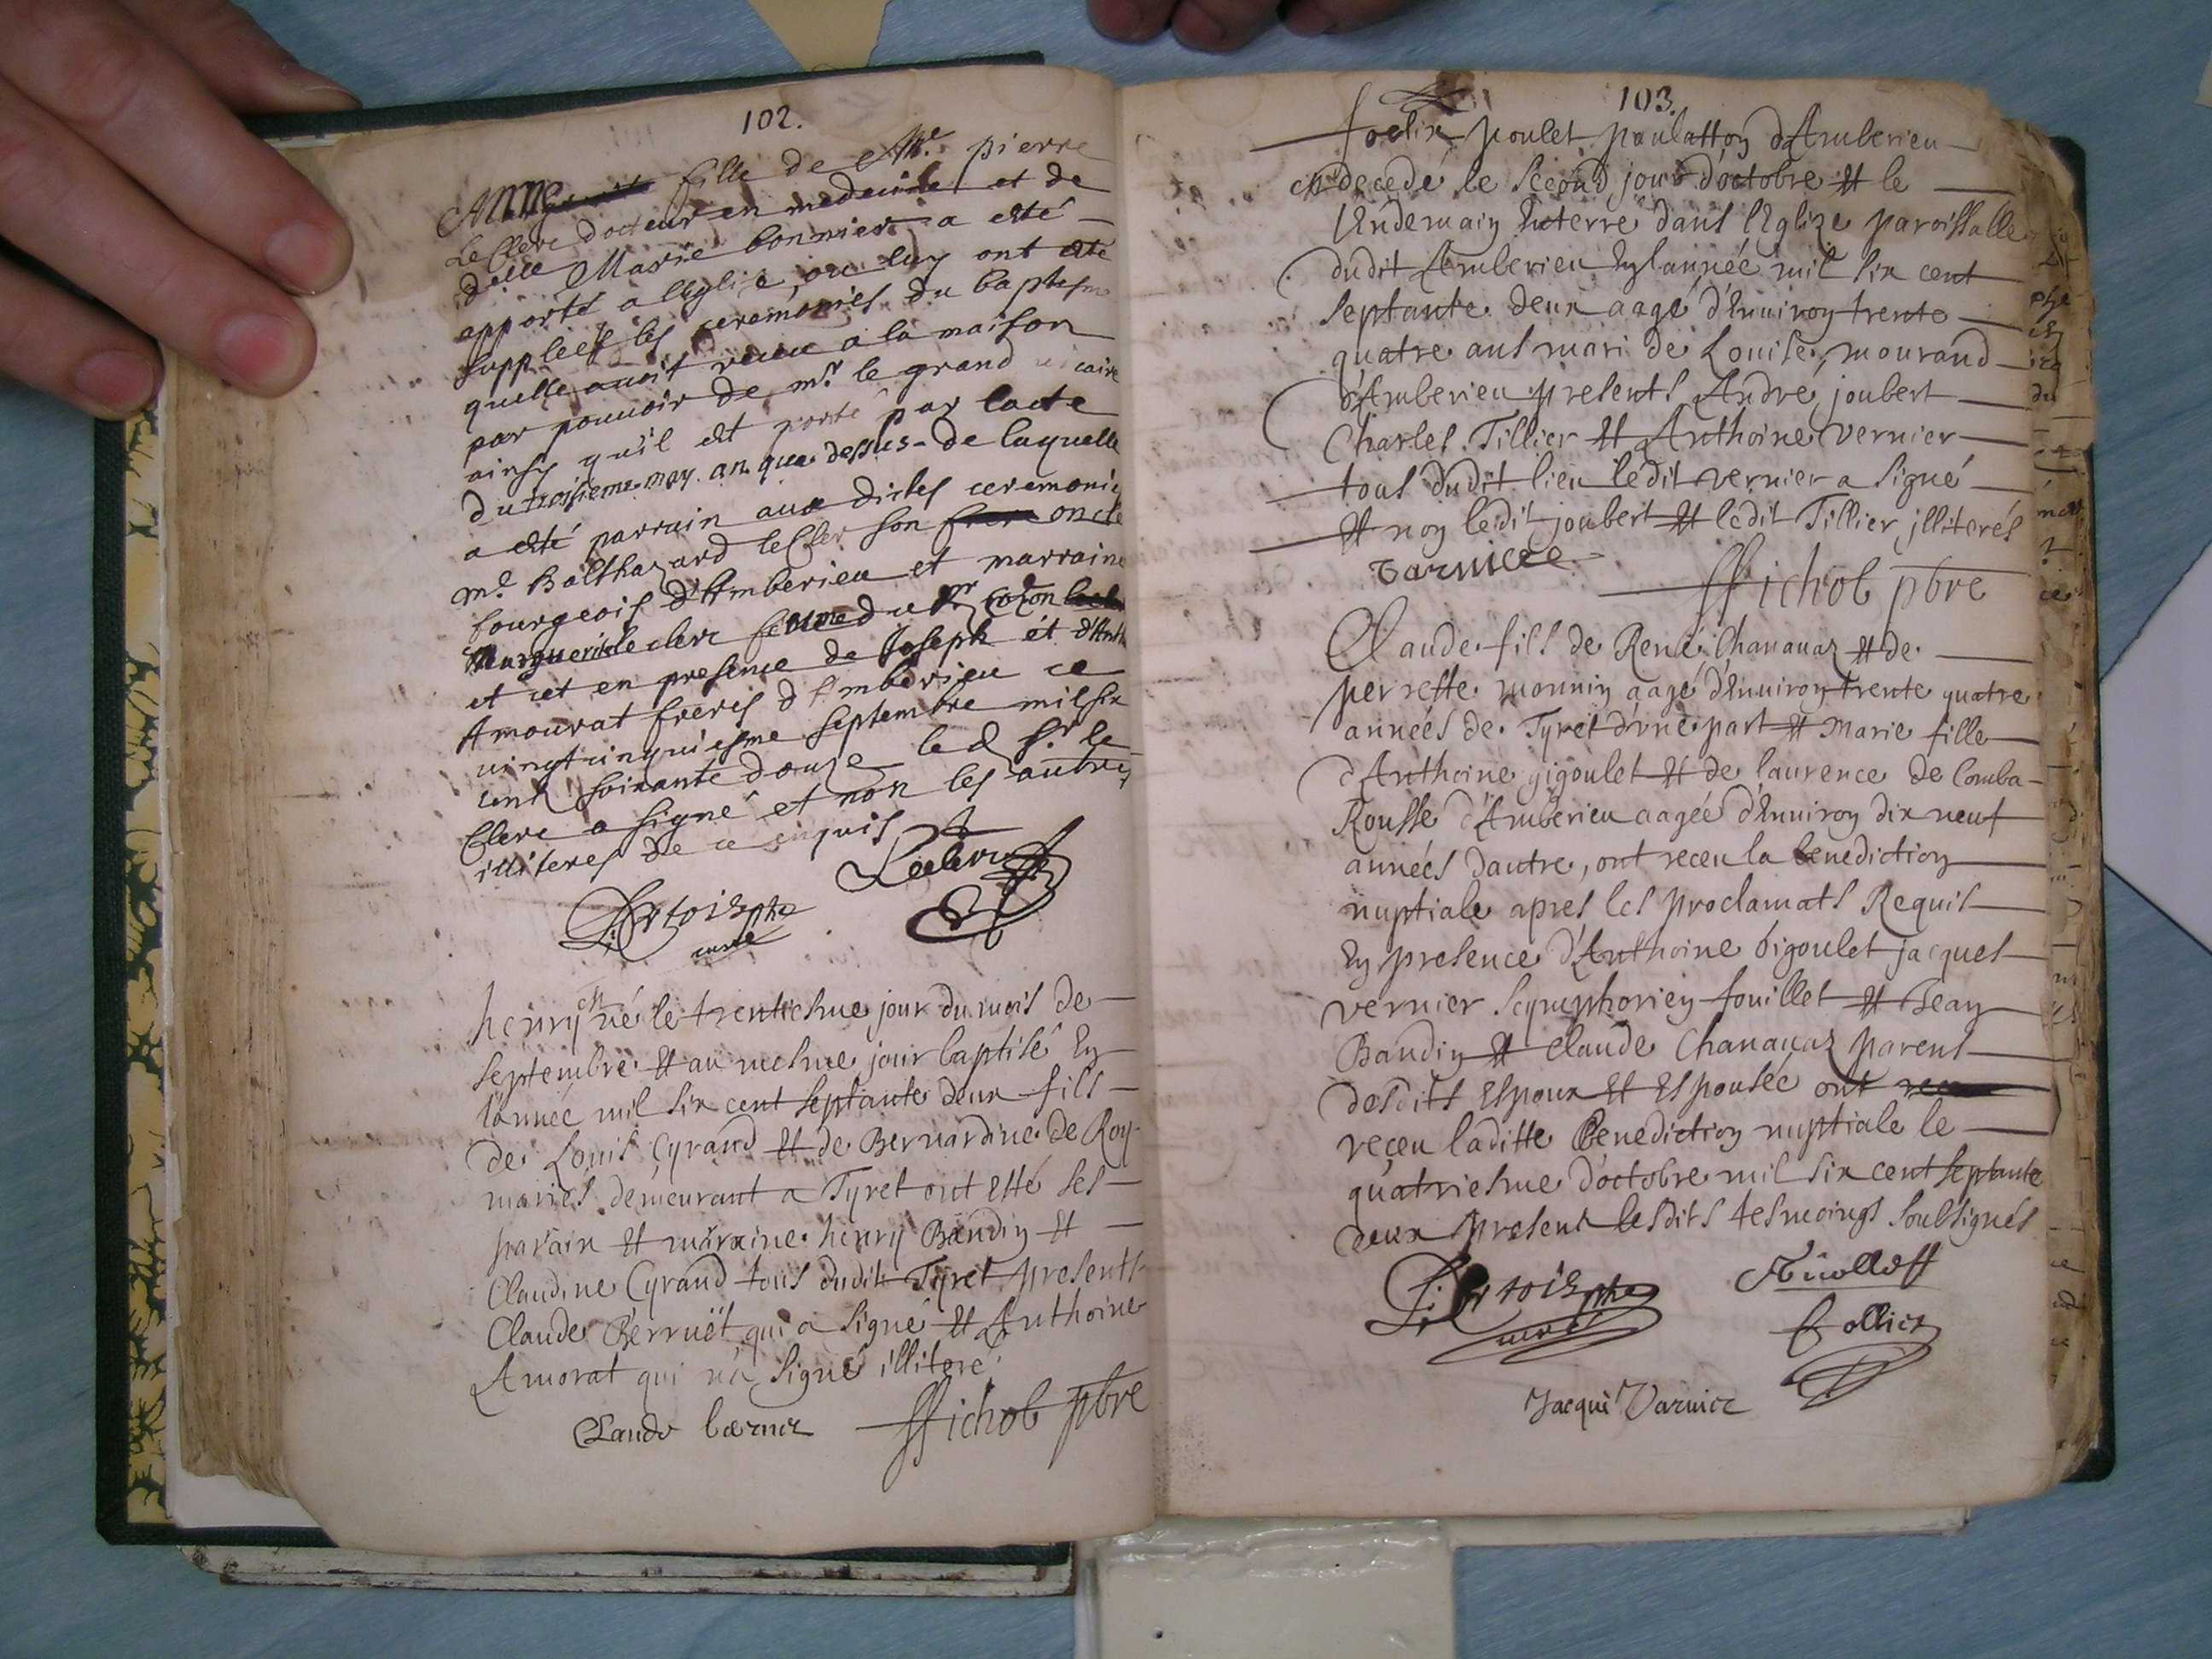 102.
Anne fille de Me. pierre
Leclerc docteur en medecine et de
delle Marie bonnier a esté
apporté a leglise, ou luy ont esté
suppleés les ceremonies du baptesme
quelle avoit receu a la maison
par pouvoir de mr. le grand vicaire
ainsy quil est porté par lacte
du troisieme may. an que dessus - de laquelle
a esté parrain aux dictes ceremonies
mr. Balthazard leCler son frere oncle
bourgeois d'Amberieu et marraine
Marguerite leclerc femme du Sr
et cet en presence de Joseph et d'Anth
Amourat freres d'Amberieu ce
vingtcinquiesme septembre mil six
cent soixante douze led Sr. le
Clerc a signé et non les autres
illiteres de ce enquis
Leclerc
curé
henry est né le trentiesme jour du mois de
Septembre et au mesme jour baptisé En
lannée mil six cent septante deux fils
de Louis Cyrand et de Bernardine de Roy
mariés demeurant a Tyret ont esté ses
parain et maraine henry Baudin et
Claudine Cyrand tous dudit Tyret presents
Claude Berruët qui a signé et Anthoine
Amorat qui n'a signé illiteré.
Claude
ffichot pbre
103.
foelix poulet paulatton d'Amberieu
est decedé le second jour d'octobre et le
lendemain Enterré dans l'Eglize paroissalle
dudit Amberieu En lannée mil six cent
septante deux aagé d'Environ trente
quatre ans mari de Louise mourand
d'Amberieu presents André joubert
Charles Tillier et Anthoine vernier
tous dudit lieu ledit vernier a signé
et non ledit joubert et ledit Tillier jlliterés
ffichot pbre
Claude fils de René Chanavaz et de
perrette monnin aagé d'Environ trente quatre
années de Tyret d'vne part et Marie fille
d'Anthoine gigoulet et de laurence de Comba-
Rousse d'Amberieu aagée d'Environ dix neuf
années dautre, ont receu la benediction
nuptiale apres les proclamats Requis
En presence d'Anthoine bigoulet jacques
vernier Scymphorien fouillet et Jean
Baudin et Claude Chanavaz parens
desdits Espoux et Espousée ont
reçeu laditte Benediction nuptiale le
quatriesme d'octobre mil six cent septante
deux present lesdits tesmoings soubsignés
Collier
Jacque Varnier